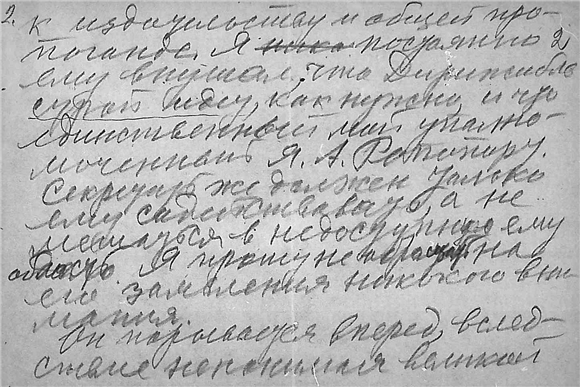 2. к издательству и общей про-
поганде. Я постоянно 2)
ему внушал, что Дирижабле
строй идет, как нужно, и что
единственный мой уполно-
моченный Я. А. Рапопорт.
Секретарь же должен только
ему содействовать, а не
мешаться в недоступную ему
область. Я прошу не обращать на
его заявления никакого вни
мания.
Он порывается вперед, вслед-
ствие непонимая великой